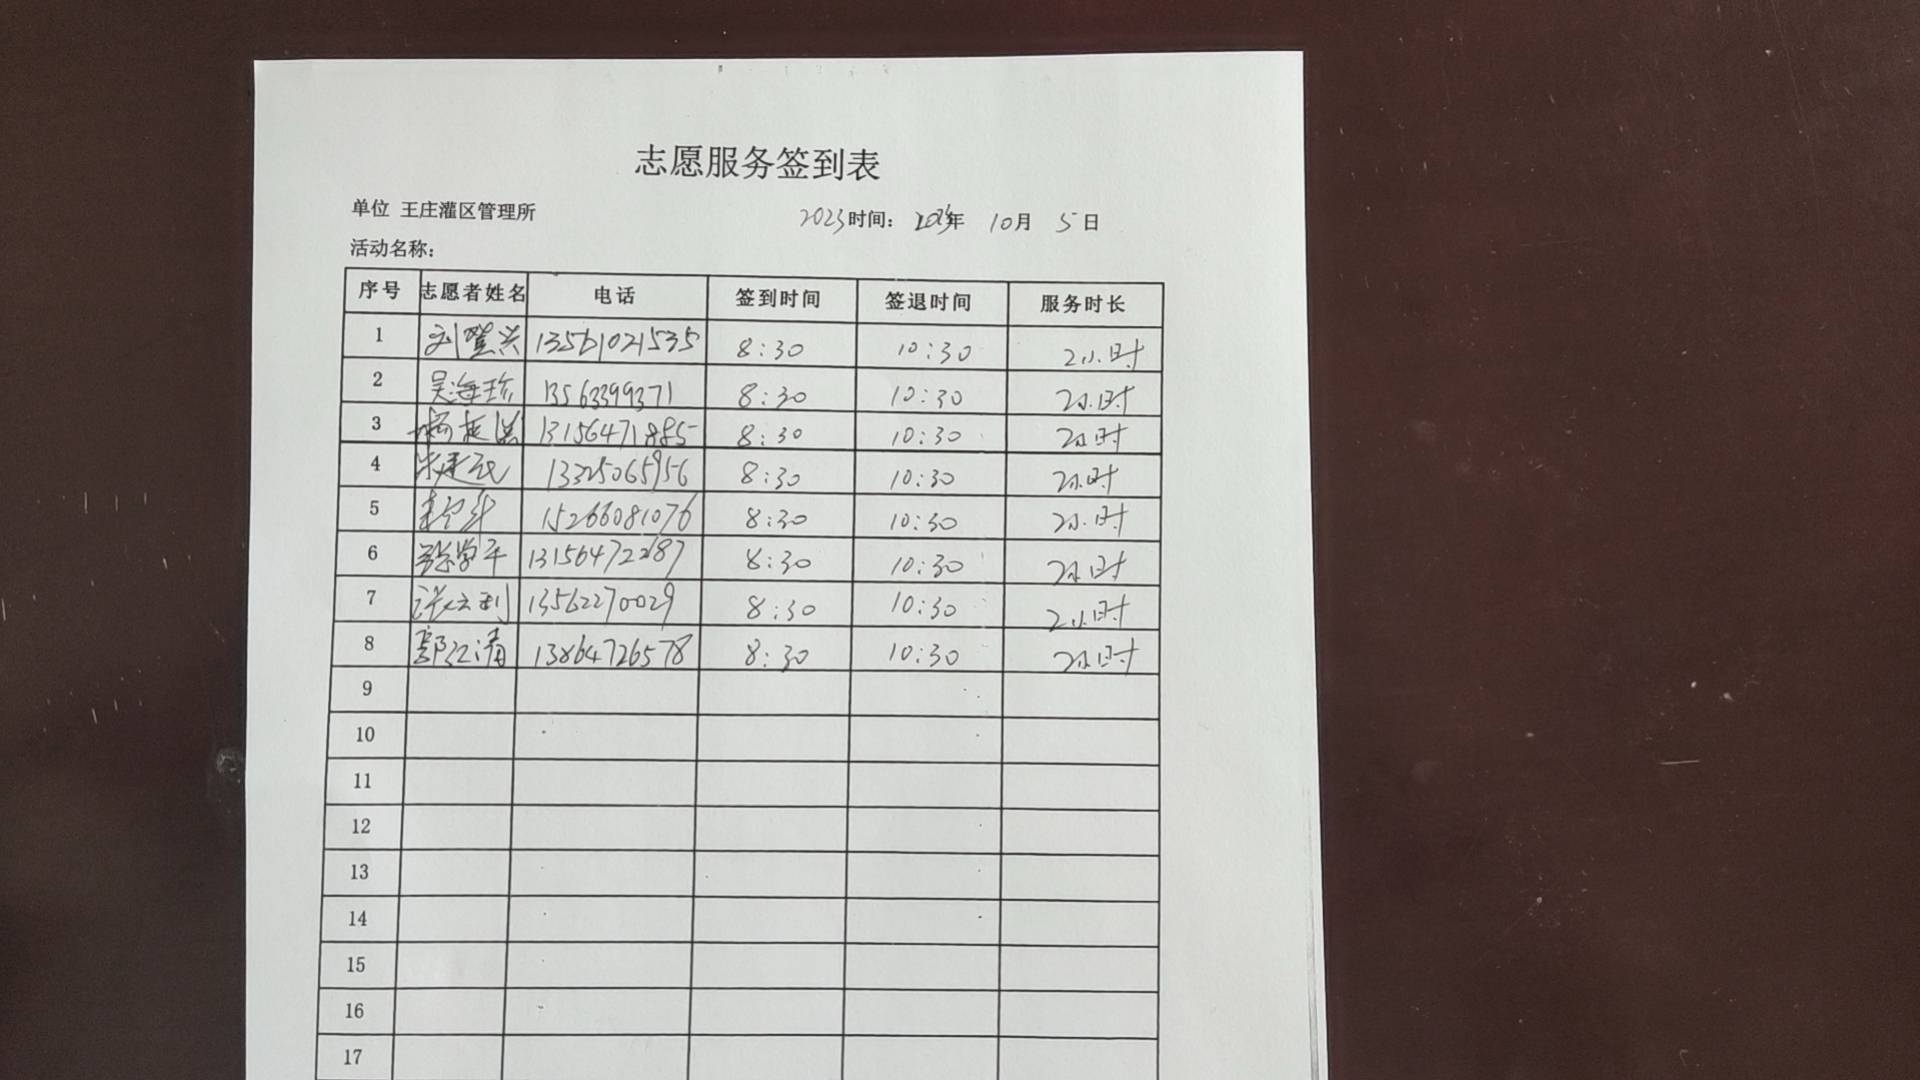 志愿服务签到表
单位 王庄灌区管理所
2023 时间: 2023年 10月 5日
活动名称:
序号 志愿者姓名 电话 签到时间 签退时间 服务时长
1 刘登兴 13561021535 8:30 10:30 2小时
2 吴海珍 13563399371 8:30 10:30 2小时
3 13156471885 8:30 10:30 2小时
4 13325065956 8:30 10:30 2小时
5 15266081076 8:30 10:30 2小时
6 张学平 13156472287 8:30 10:30 2小时
7 张立利 13562270029 8:30 10:30 2小时
8 郭江涛 13864726578 8:30 10:30 2小时
9
10
11
12
13
14
15
16
17